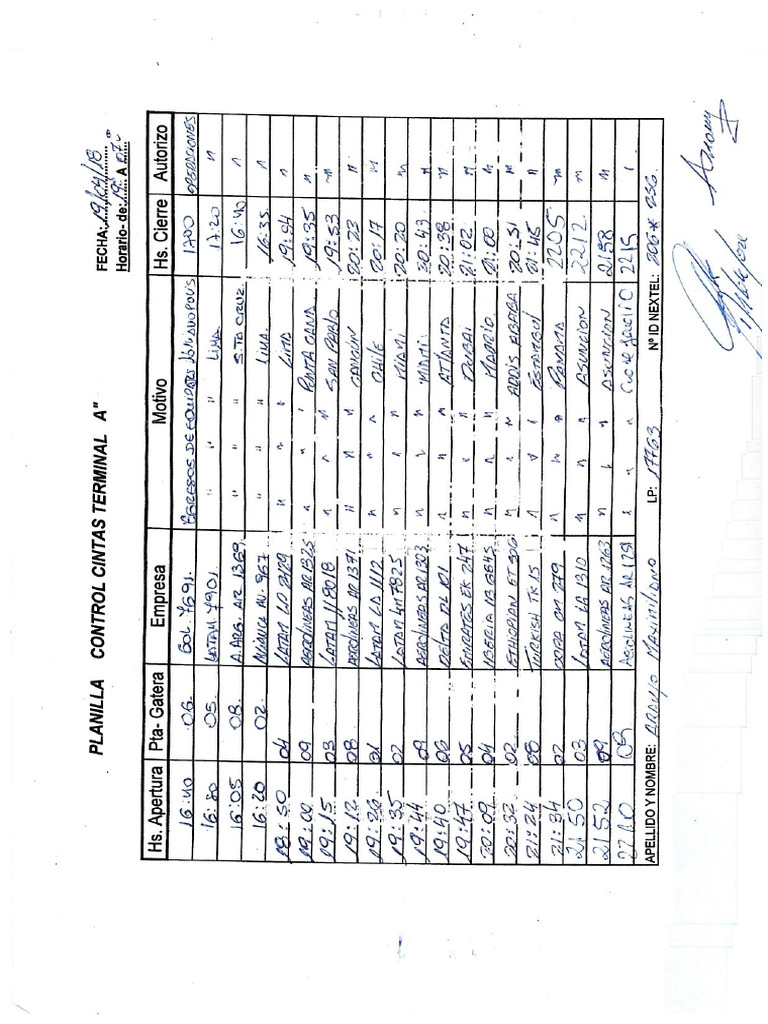 PLANILLA CONTROL CINTAS TERMINAL A"
FECHA: 19/04/18
Horario- de: 19 A 07
Hs. Apertura Pta- Gatera Empresa Motivo Hs. Cierre Autorizo
16:40 06. GOL. 7691. EGRESOS DE EQUIPAJES 1700 OPERACIONES
16:30 05. LATAM 7901 " " " LIMA 17:20 "
16:05 08. A. ARG. AR 1369. " " " STA CRUZ 16:40 "
16:20 02. AVIANCA AV. 967 " " " LIMA. 16:35. "
18:50 04 LATAM LA 2429 " " " LIMA 19:04 "
19:00 09 AEROLINEAS AR 1325 " " PUNTA CANA 19:35 "
19:15 03 LATAM 118018 " " " SAN PABLO 19:53 "
19:12 08 AEROLINEAS AR 1371 " " " CANCÚN 20:23 "
19:26 01 LATAM LA 1112 " " " CHILE 20:17 "
19:35 02 LATAM 4M 7825 " " " MIAMI 20:20 "
19:44 09 AEROLINEAS AR 1303 " " " MIAMI 20:43 "
19:40 06 DELTA DL 101 " " " ATLANTA 20:38 "
19:47 05 EMIRATES EK 247 " " " DUBAI 21:02 "
20:09 04 IBERIA IB 6845 " " " MADRID 21:00 "
20:32 02 ETHIOPIAN ET 506 " " " ADDIS ABABA 20:51 "
21:24 08 TURKISH TK 15 " " " ESTAMBUL 21:45 "
21:34 02 COPA CM 279 " " " PANAMA 2205 "
21 50 03 LATAM LA 1310 " " " ASUNCION 2212 "
21 52 09 AEROLINEAS AR 1263 " " " ASUNCION 2158 "
22 10 09 AEROLINEAS AR " " " 2215 "
APELLIDO Y NOMBRE: ARAUJO MAXIMILIANO LP: 17763 Nº ID NEXTEL: 206*